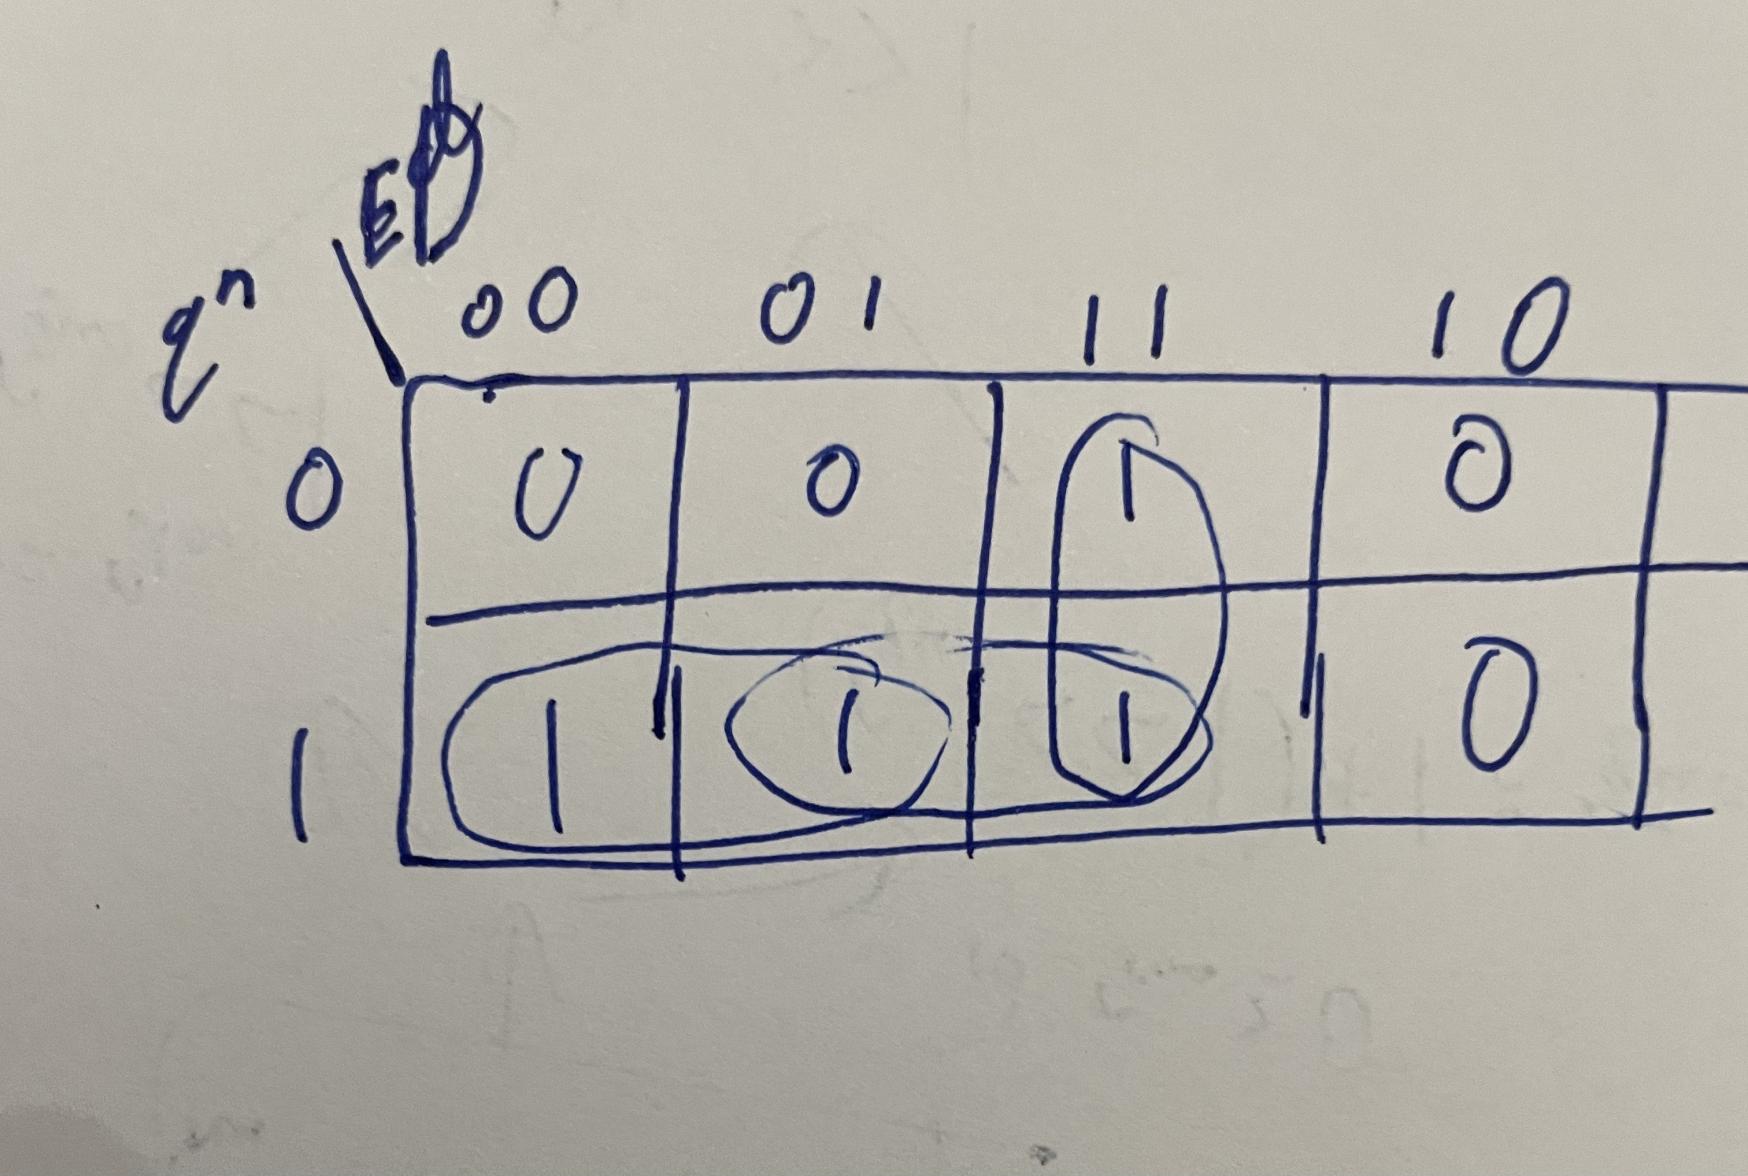 ED
qⁿ 00 01 11 10
0 0 0 1 0
1 1 1 1 0